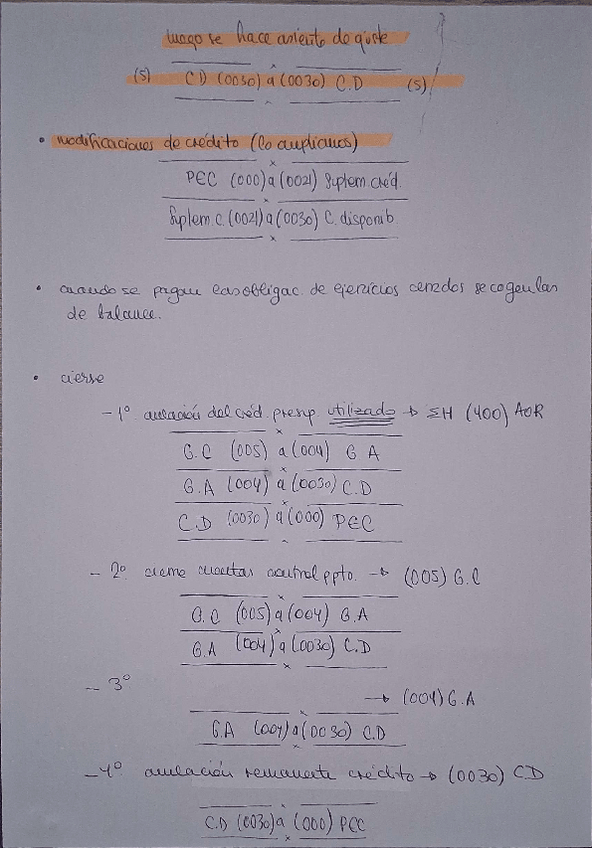 luego se hace asiento de ajuste
(5) CD (0030) a (0030) C.D (5)
• modificaciones de crédito (lo ampliamos)
PEC (000) a (0021) Suplem. créd.
Suplem. C. (0021) a (0030) C. disponib
• cuando se pagan las obligac. de ejercicios cerrados se cogen las
de balance.
• cierre
- 1º anulación del créd. presup. utilizado → ΣH (400) AOR
G.C (005) a (004) G A
G.A (004) a (0030) C.D
C.D (0030) a (000) PEC
- 2º cierre cuentas control ppto. → (005) G.C
G.C (005) a (004) G.A
G.A (004) a (0030) C.D
- 3º → (004) G.A
G.A (004) a (0030) C.D
- 4º anulación remanente crédito → (0030) CD
C.D (0030) a (000) PEC